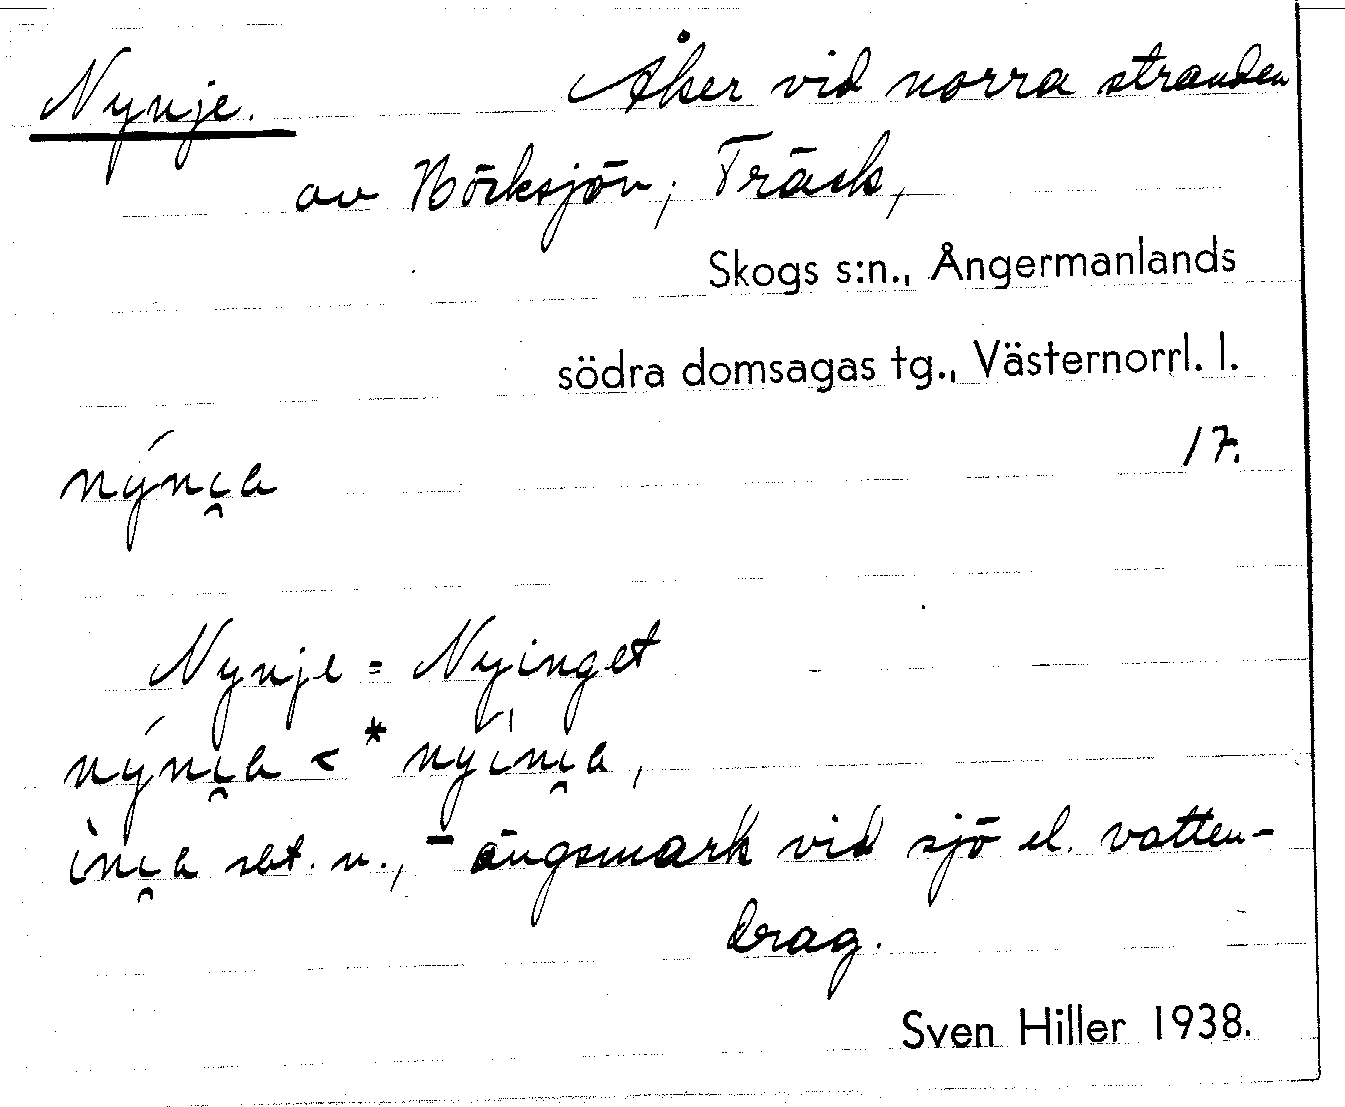 Nynje. Åker vid norra stranden
av Börksjön, Träsk,
Skogs s:n., Ångermanlands
södra domsagas tg., Västernorrl. l.
nýni̯a 17.
Nynje = Nyinget
nýni̯a < *nyíni̯a,
ìni̯a sbt. n., - ängsmark vid sjö el. vatten-
drag.
Sven Hiller 1938.